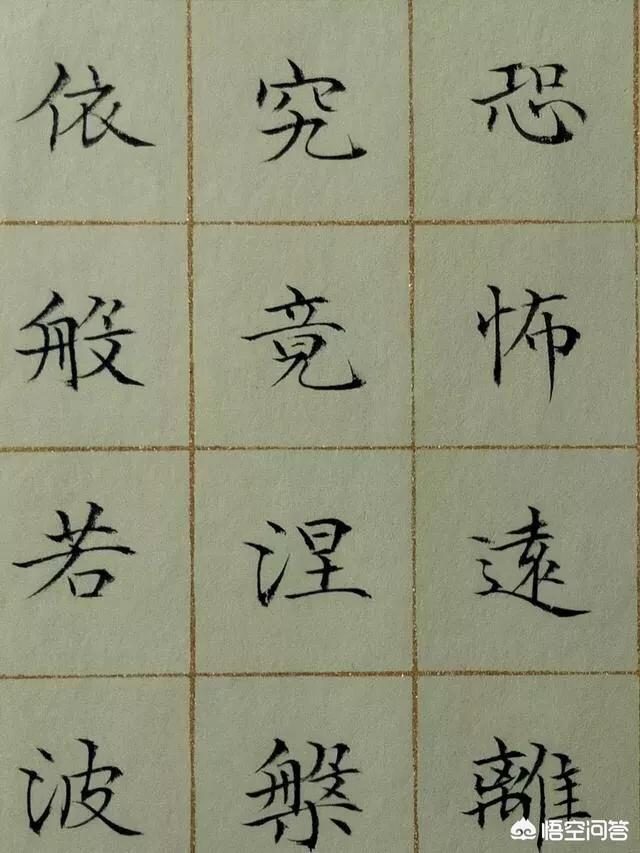 恐怖遠離
究竟涅槃
依般若波
悟空问答